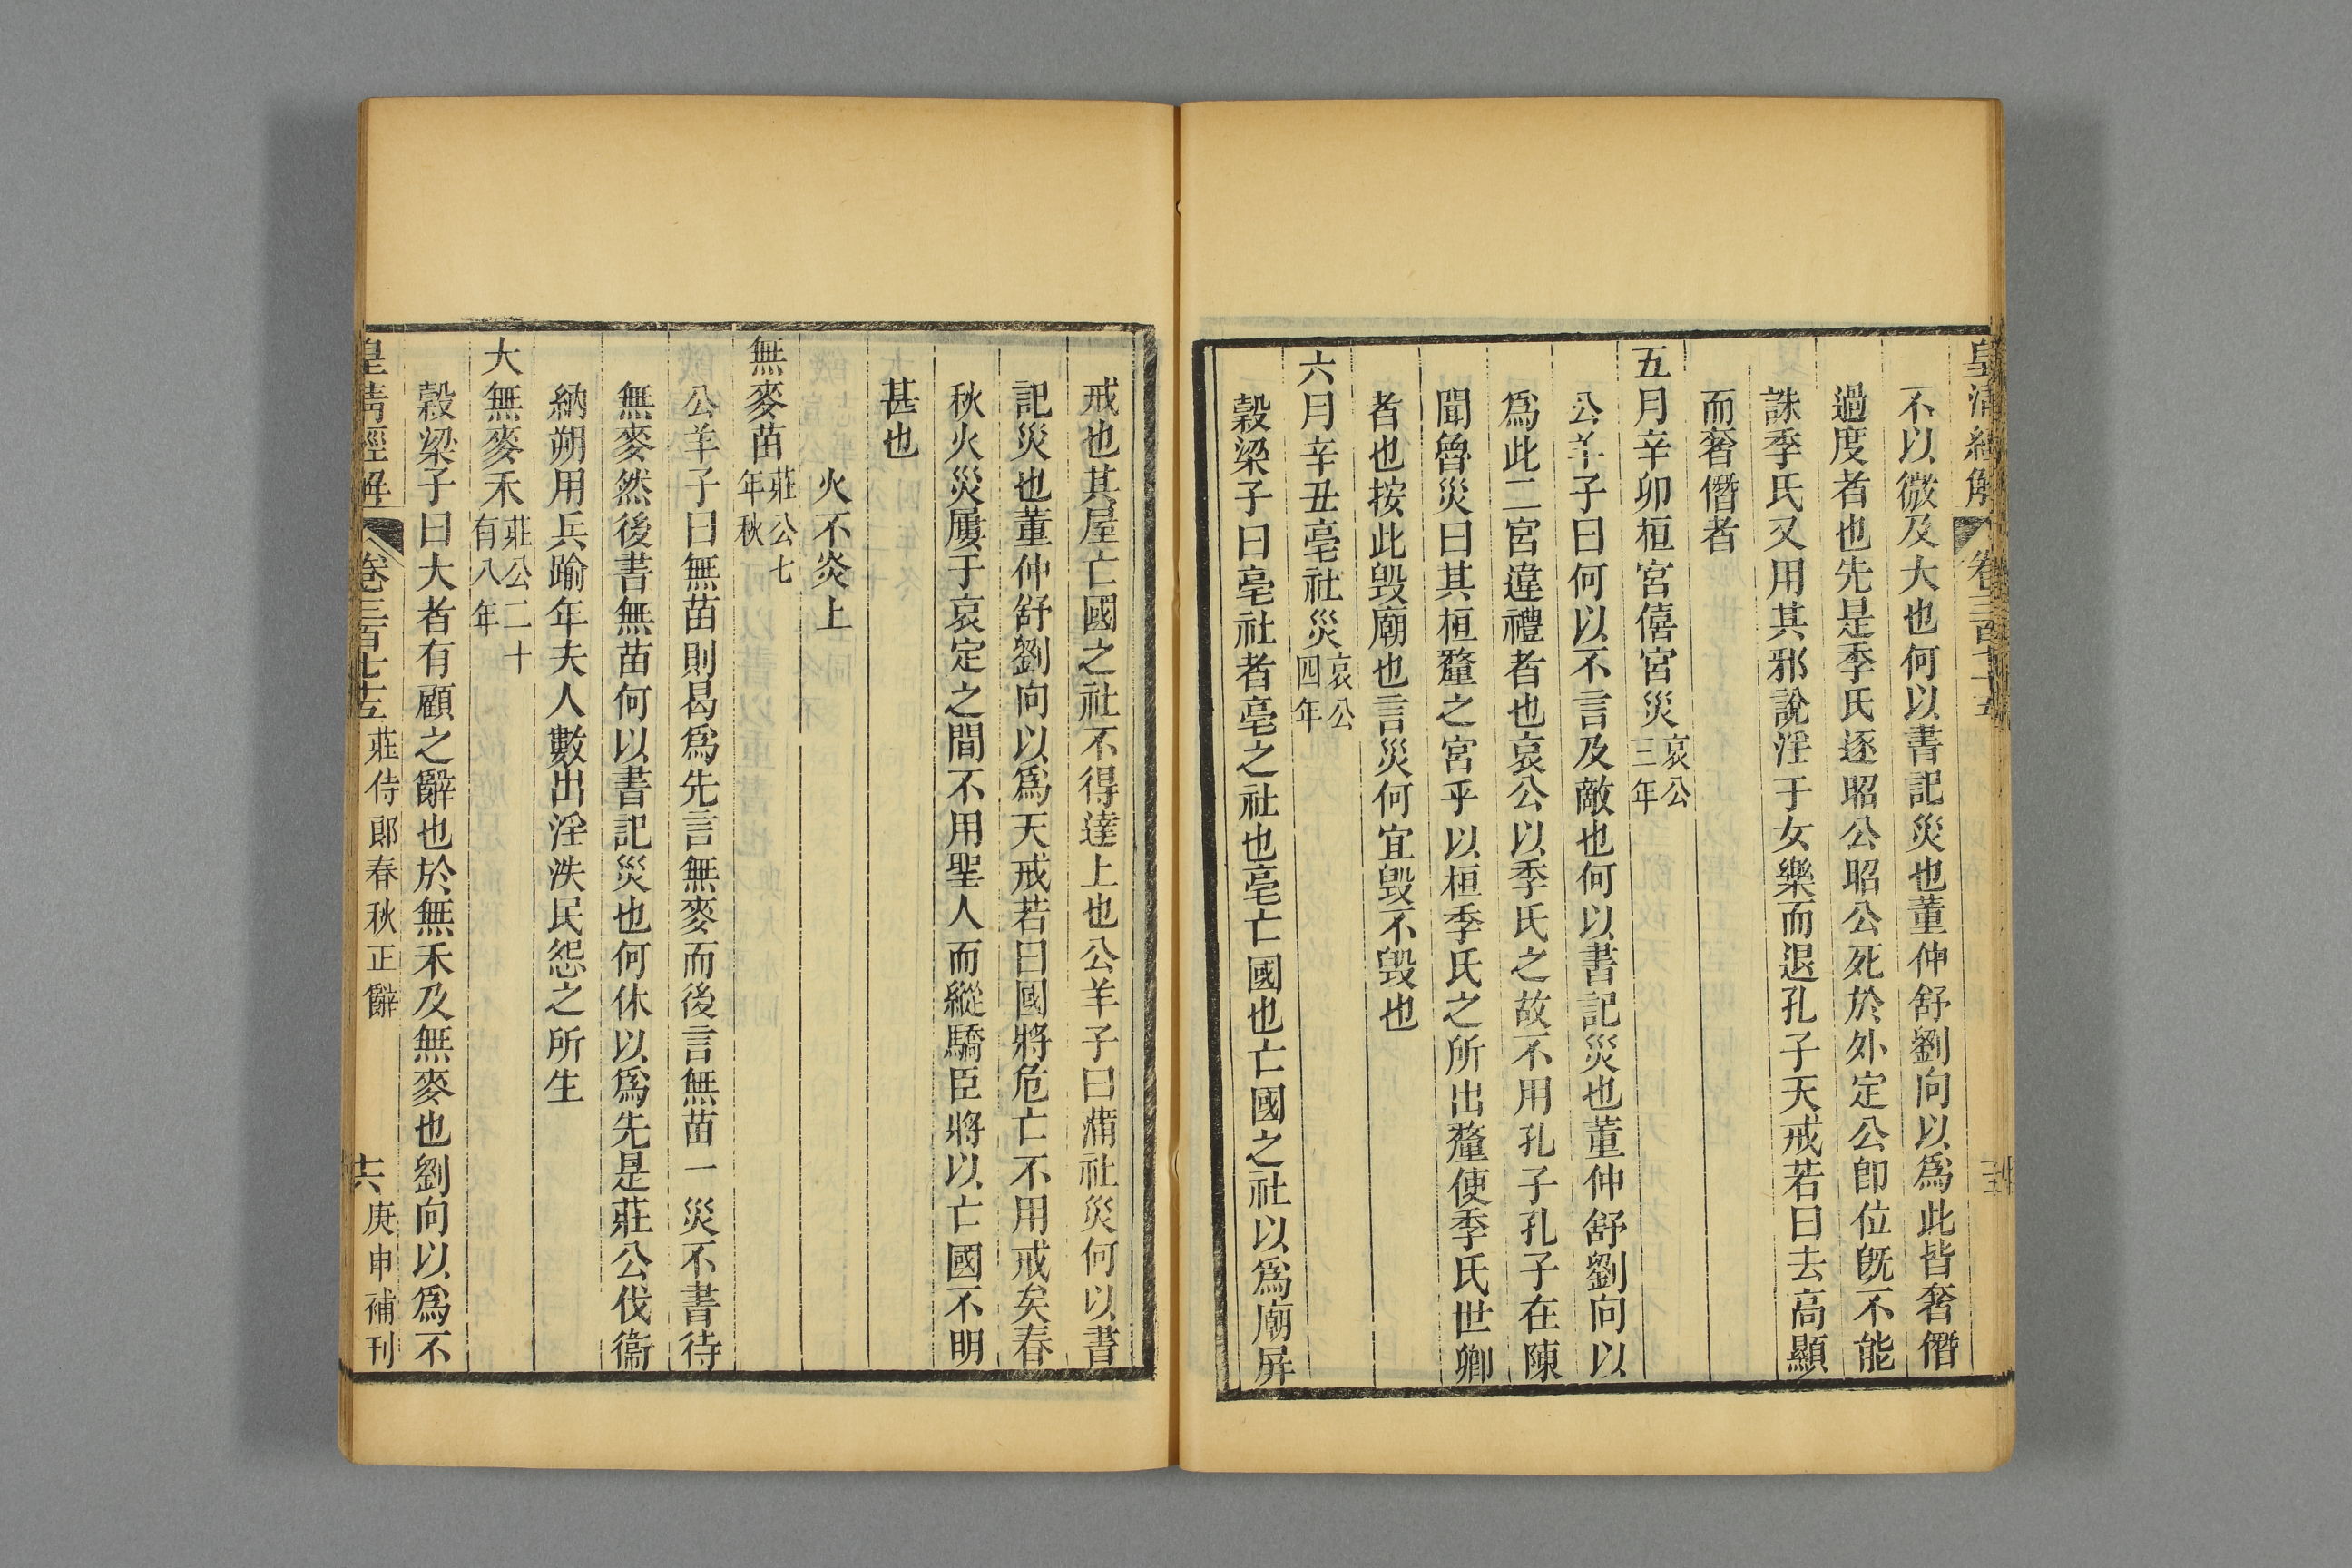 皇清經解 卷三百七十五
不以微及大也何以書記災也董仲舒劉向以爲此皆奢僭
過度者也先是季氏逐昭公昭公死於外定公卽位旣不能
誅季氏又用其邪說淫于女樂而退孔子天戒若曰去高顯
而奢僭者
五月辛卯桓宮僖宮災哀公三年
公羊子曰何以不言及敵也何以書記災也董仲舒劉向以
爲此二宮違禮者也哀公以季氏之故不用孔子孔子在陳
聞魯災曰其桓釐之宮乎以桓季氏之所出釐使季氏世卿
者也按此毀廟也言災何宜毀不毀也
六月辛丑亳社災哀公四年
穀梁子曰亳社者亳之社也亳亡國也亡國之社以爲廟屏
戒也其屋亡國之社不得達上也公羊子曰蒲社災何以書
記災也董仲舒劉向以爲天戒若曰國將危亡不用戒矣春
秋火災屢于哀定之間不用聖人而縱驕臣將以亡國不明
甚也
火不炎上
無麥苗莊公七年秋
公羊子曰無苗則曷爲先言無麥而後言無苗一災不書待
無麥然後書無苗何以書記災也何休以爲先是莊公伐衞
納朔用兵踰年夫人數出淫泆民怨之所生
大無麥禾莊公二十有八年
穀梁子曰大者有顧之辭也於無禾及無麥也劉向以爲不
皇清經解 卷三百七十五 莊侍郎春秋正辭 十六 庚申補刊